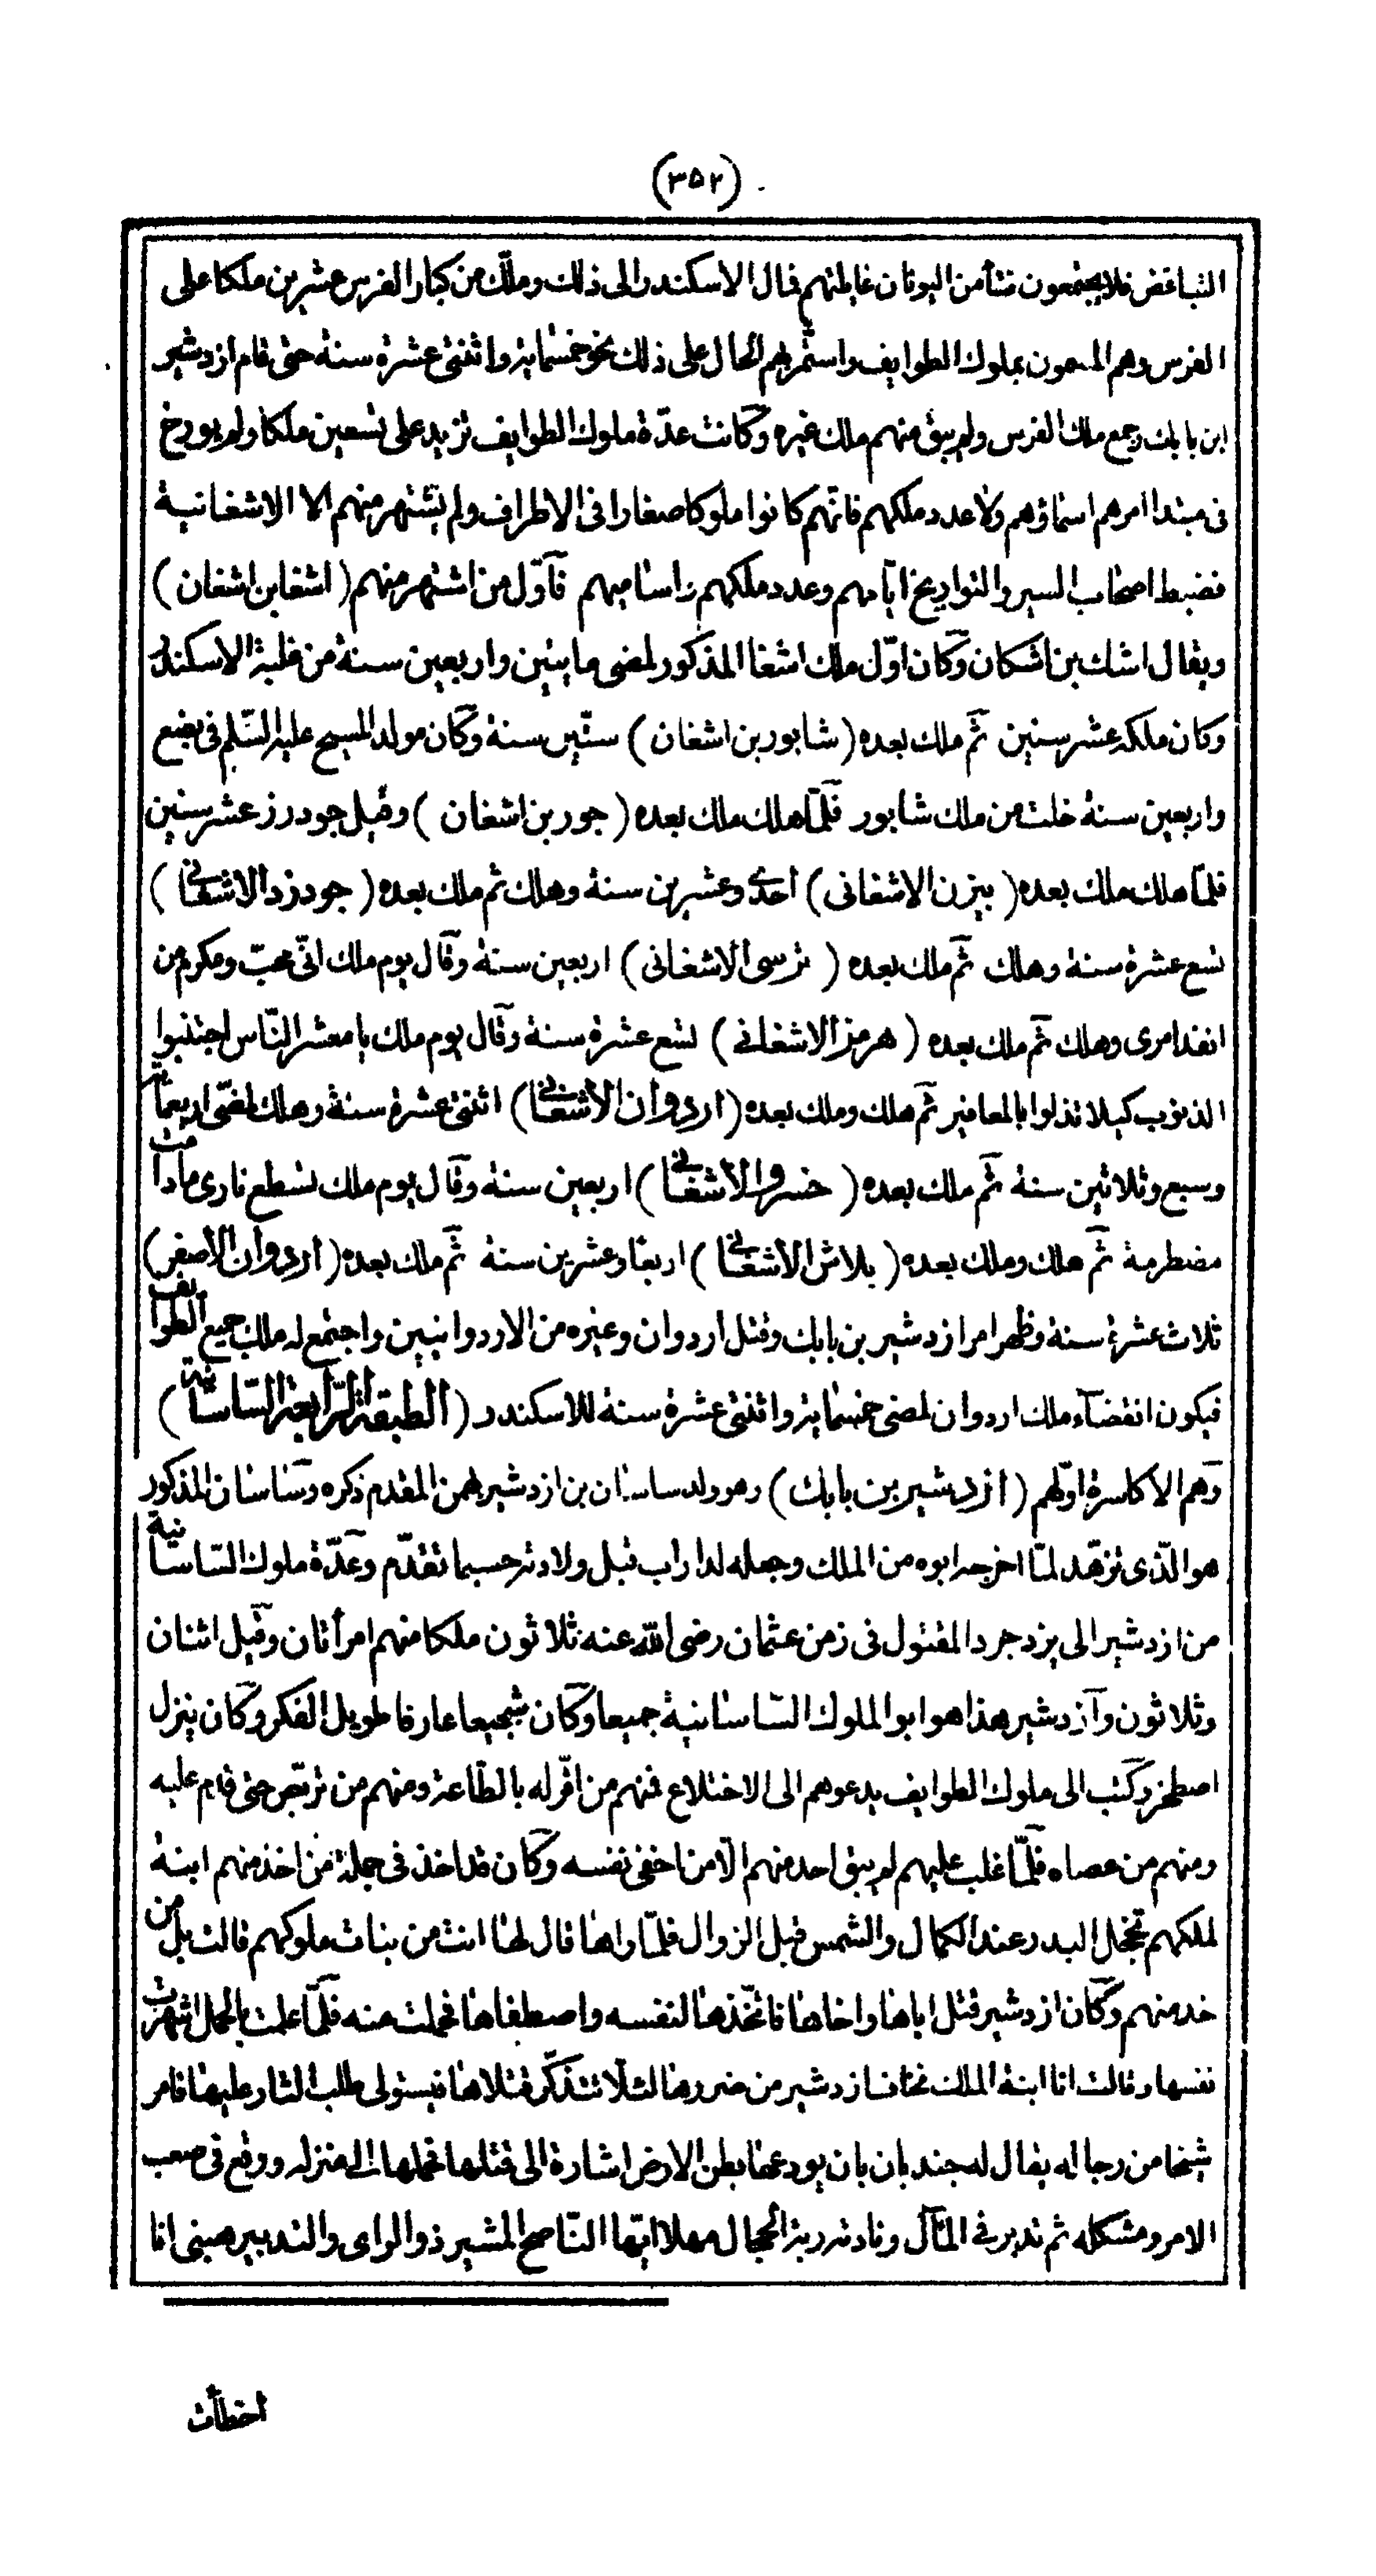 (٣٥٢)
التباغض فلا يجتمعون فتأمن اليونان غايلتهم فمال الاسكندر الى ذلك وملّك من كبار الفرس عشرين ملكا على
الفرس وهم المسمون بملوك الطوايف واستمر بهم الحال على ذلك نحو خمسماية واثنتى عشرة سنة حتى قام ازدشير
ابن بابك وجمع ملك الفرس ولم يبق منهم ملك غيره وكانت عدّة ملوك الطوايف تزيد على تسعين ملكا ولم يورخ
فى مبتدا امرهم اسماؤهم ولا عدد ملكهم فانّهم كانوا ملوكا صغارا فى الاطراف ولم يشتهر منهم الا الاشغانية
فضبط اصحاب السير والتواريخ ايّامهم وعدد ملكهم واساميهم فاوّل من اشتهر منهم (اشغا بن اشغان)
ويقال اشك بن اشكان وكان اوّل ملك اشغا المذكور لمضى مايتين واربعين سنة من غلبة الاسكندر
وكان ملكه عشر سنين ثم ملك بعده (شابور بن اشغان) ستّين سنة وكان مولد المسيح عليه السّلم فى بضع
واربعين سنة خلت من ملك شابور فلمّا هلك ملك بعده (جور بن اشغان) وقيل جودرز عشر سنين
فلمّا هلك ملك بعده (بيزن الاشغانى) احدى وعشرين سنة وهلك ثم ملك بعده (جودزد الاشغانى)
تسع عشرة سنة وهلك ثم ملك بعده (نرسى الاشغانى) اربعين سنة وقال يوم ملك انّى محبّ ومكرم من
انفذ امرى وهلك ثم ملك بعده (هرمز الاشغانى) تسع عشرة سنة وقال يوم ملك يا معشر النّاس اجتنبوا
الذنوب كيلا تذلوا بالمعاذير ثم هلك وملك بعده (اردوان الاشغانى) اثنتى عشرة سنة وهلك لمضى اربعماية
وسبع وثلاثين سنة ثم ملك بعده (خسرو الاشغانى) اربعين سنة وقال يوم ملك تسطع نارى ما دامت
مضطرمة ثم هلك وملك بعده (بلاش الاشغانى) اربعا وعشرين سنة ثم ملك بعده (اردوان الاصغر)
ثلاث عشرة سنة وظهر امر ازدشير بن بابك وقتل اردوان وغيره من الاردوانيين واجتمع له ملك جميع الطوايف
فيكون انقضاء ملك اردوان لمضى خمسماية واثنتى عشرة سنة للاسكندر (الطبقة الرّابعة السّاسانية)
وهم الاكاسرة اوّلهم (ازدشير بن بابك) وهو ولد ساسان بن ازدشير بهمن المقدم ذكره وساسان المذكور
هو الّذى تزهّد لمّا اخرجه ابوه من الملك وجعله لداراب قبل ولادته حسبما تقدّم وعدّة ملوك السّاسانية
من ازدشير الى يزدجرد المقتول فى زمن عثمان رضى الله عنه ثلاثون ملكا منهم امرأتان وقيل اثنان
وثلاثون وازدشير هذا هو ابو الملوك السّاسانية جميعا وكان شجيعا عارفا طويل الفكر وكان ينزل
اصطخر وكتب الى ملوك الطوايف يدعوهم الى الاختلاع فمنهم من اقرّ له بالطّاعة ومنهم من تربّص حتى قدم عليه
ومنهم من عصاه فلمّا غلب عليهم لم يبق احد منهم الّا من اخفى نفسه وكان قد اخذ فى جملة من اخذ منهم ابنة
لملكهم تخجل البدر عند الكمال والشمس قبل الزوال فلمّا راها قال لها انت من بنات ملوكهم قالت بل من
خدمهم وكان ازدشير قتل اباها واخاها فاتّخذها لنفسه واصطفاها فحملت منه فلمّا علمت بالحمل اشهرت
نفسها وقالت انا ابنة الملك فخاف ازدشير من ضررها لئلّا تتذكّر قتلاها فيستولى طلب الثار عليها فامر
شيخا من رجاله يقال له جند بان بان يودعها بطن الارض اشارة الى قتلها فحملها الى منزله ووقع فى صعب
الامر ومشكله ثم تدبر فى المآل ونادته ربة الحجال مهلا ايّها النّاصح المشير ذو الراى والتدبير هبنى انا
اخطات